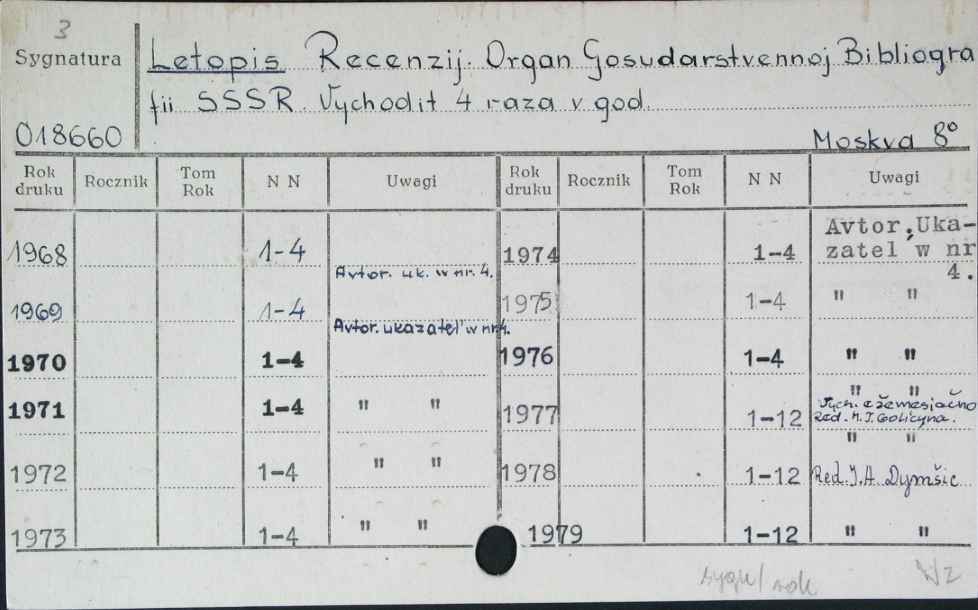 3
Sygnatura
Letopis Recenzij. Organ Gosudarstvennoj Bibliogra
fii SSSR. Vychodit 4 raza v god.
018660
Moskva 8°
Rok druku Rocznik Tom Rok N N Uwagi Rok druku Rocznik Tom Rok N N Uwagi
1968 1-4 Avtor. uk. w nr. 4.
1969 1-4 Avtor. ukazatel' w nr 4.
1970 1-4
1971 1-4 " "
1972 1-4 " "
1973 1-4 " "
1974 1-4 Avtor. Uka-
zatel' w nr
4.
1975 1-4 " "
1976 1-4 " "
1977 1-12 " "
Vych. ežemesjačno
Red. M. I. Golicyna.
1978 1-12 " "
Red. I. A. Dymšic
1979 1-12 " "
sygn/ rok
Wz